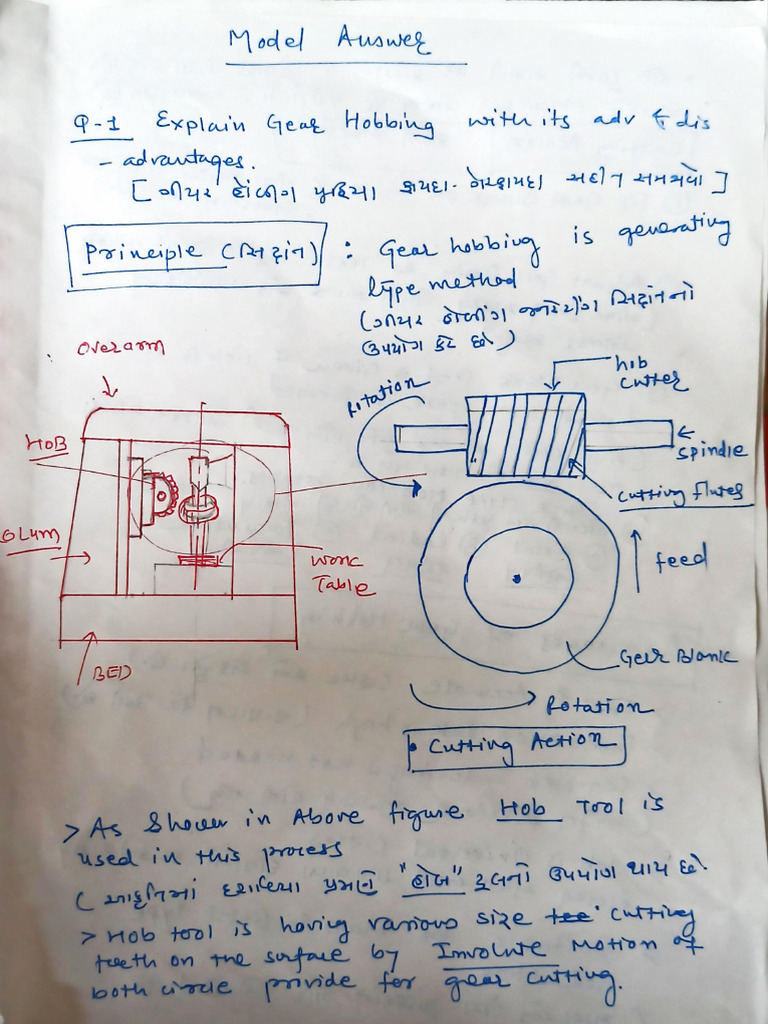 Model Answer
Q-1 Explain Gear Hobbing with its adv & dis
- advantages.
[ ગીયર હોબીંગ પ્રક્રિયા ફાયદા-ગેરફાયદા સહીત સમજાવો ]
Principle (સિદ્ધાંત) : Gear hobbing is generating
type method
(ગીયર હોબીંગ જનરેટીંગ સિદ્ધાંતનો
ઉપયોગ કરે છે)
overarm
HOB
olum
work
Table
BED
Rotation
hob
cutter
spindle
cutting flutes
feed
Gear Blank
Rotation
• Cutting Action
> As Shown in Above figure Hob Tool is
used in this process
( આકૃતિમાં દર્શાવ્યા પ્રમાણે "હોબ" ટૂલનો ઉપયોગ થાય છે.
> Hob tool is having various size cutting
teeth on the surface by Involute Motion of
both circle provide for gear cutting.